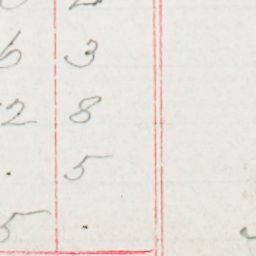 6 3
2 8
5
5